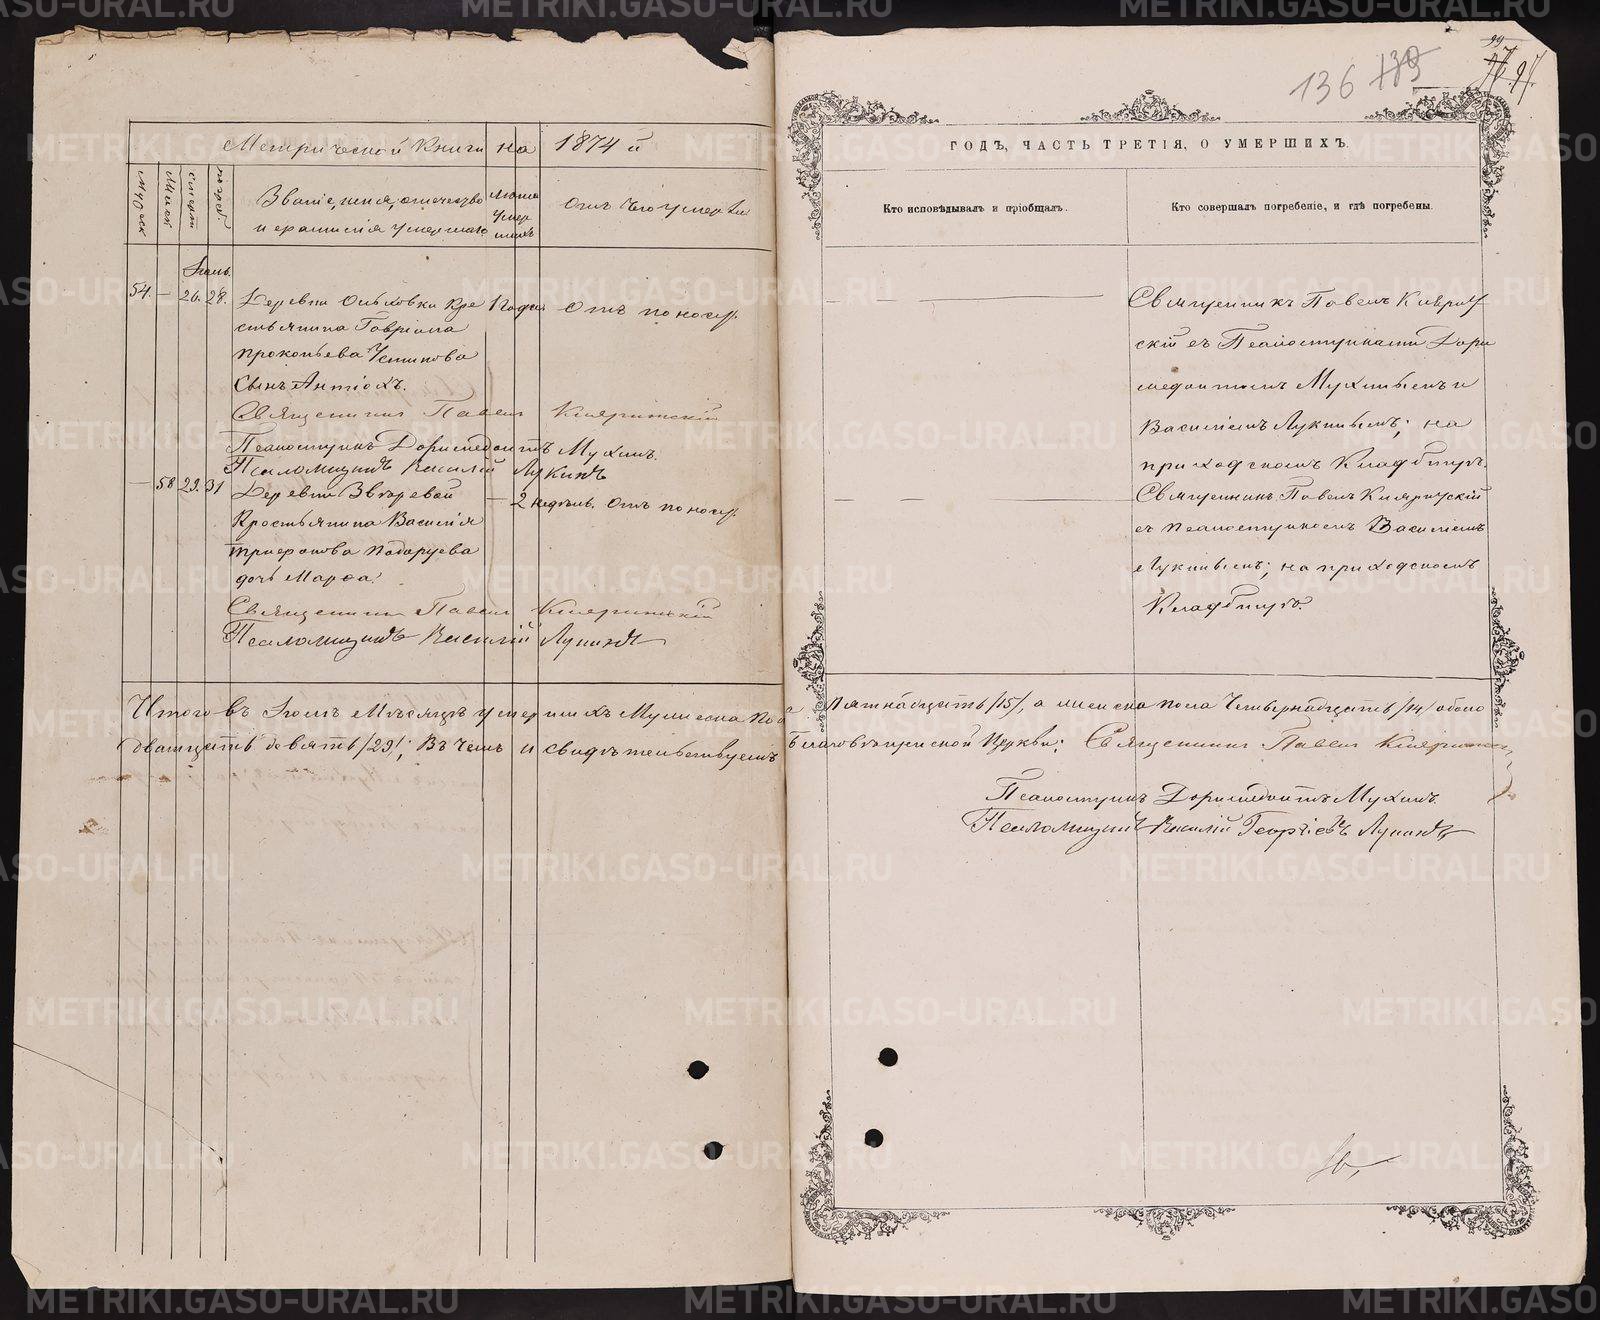 136 139
99
97
Метрической Книги на 1874 й
ГОДЪ, ЧАСТЬ ТРЕТІЯ, О УМЕРШИХЪ.
Мужск
Женск
смерти
погреб.
Званіе, имя, отчество
и фамилія умершаго
Лѣта
умер
шихъ
Отъ чего умеръ
Кто исповѣдывалъ и пріобщалъ.
Кто совершалъ погребеніе, и гдѣ погребены.
54. — 26. 28. Деревни Ольховки Кре
стьянина Гавріила
Прокопьева Устинова
Сынъ Антіохъ.
1 года Отъ поноса.
Священникъ Павелъ
Псаломщикъ Доримедонтъ Мухинъ.
Псаломщикъ Василій Лукинъ
Священникъ Павелъ
скій съ Псаломщиками Дори
медонтомъ Мухинымъ и
Василіемъ Лукинымъ; на
приходскомъ Кладбищѣ.
— 58 29. 31 Деревни
Крестьянина Василія
Трифонова
дочь Марфа.
— 2 недѣль. Отъ поноса.
Священникъ Павелъ
Псаломщикъ Василій Лукинъ
Священникъ Павелъ
съ Псаломщикомъ Василіемъ
Лукинымъ; на приходскомъ
Кладбищѣ.
Итого въ Іюлѣ мѣсяцѣ умершихъ Мужеска пола Пятнадцать /15/, а женска пола Четырнадцать /14/ обоего
двадцать девять /29/; Въ чемъ и свидѣтельствуемъ Церкви: Священникъ Павелъ
Псаломщикъ Доримедонтъ Мухинъ.
Псаломщикъ Василій Георгіевъ Лукинъ
METRIKI.GASO-URAL.RU